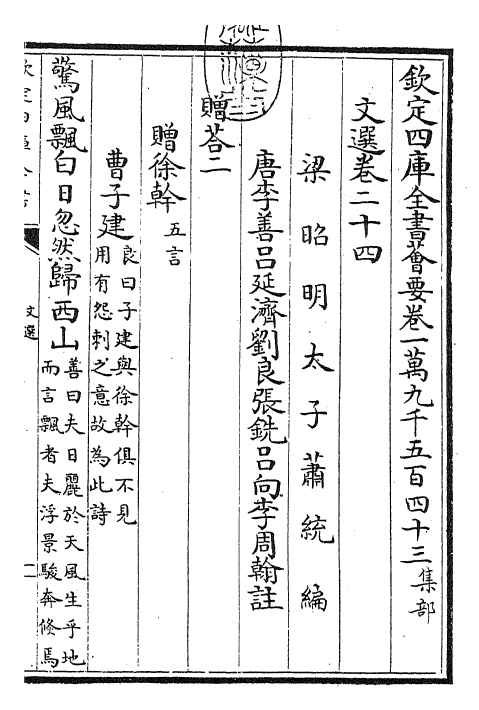 欽定四庫全書薈要卷一萬九千五百四十三 集部
文選卷二十四
梁昭明太子蕭統編
唐李善呂延濟劉良張銑呂向李周翰註
贈荅二
贈徐幹 五言
曹子建 良曰子建與徐幹俱不見
用有怨刺之意故為此詩
驚風飄白日忽然歸西山 善曰夫日麗於天風生乎地
而言飄者夫浮景駿奔倐焉
文選